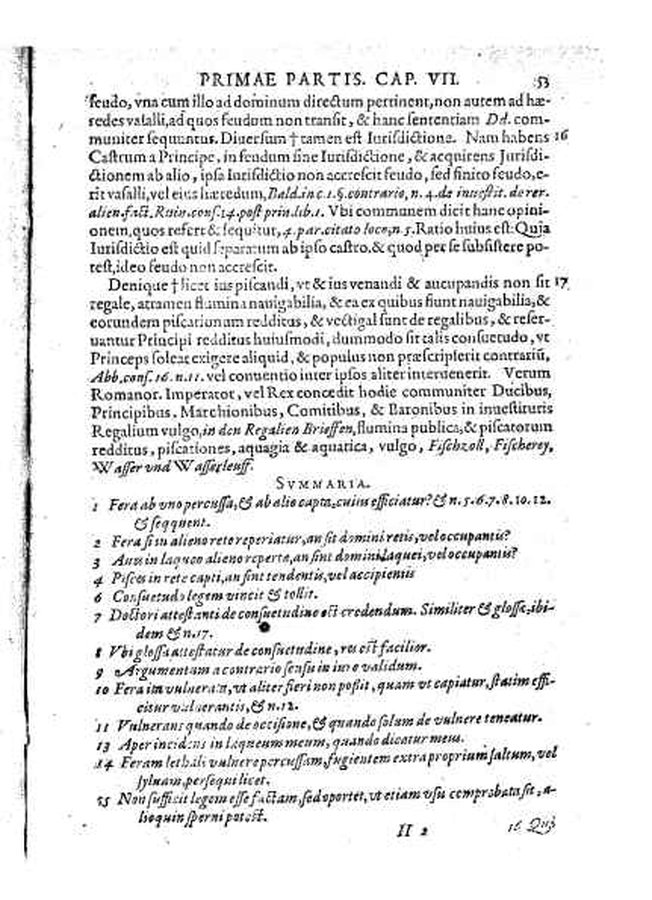 PRIMAE PARTIS. CAP. VII. 53
feudo, vna cum illo ad dominum directum pertinent, non autem ad hæ-
redes vasalli, ad quos feudum non transit, & hanc sententiam Dd. com-
muniter sequuntur. Diuersum † tamen est Iurisdictione. Nam habens 16
Castrum a Principe, in feudum sine Iurisdictione, & acquirens Jurisdi-
ctionem ab alio, ipsa Iurisdictio non accrescit feudo, sed finito feudo, e-
rit vasalli, vel eius hæredum, Bald. in c. 1. §. contrario, n. 4. de inuestit. de rer.
alien. fact. Ruin. cons. 14. post prin. lib. 1. Vbi communem dicit hanc opini-
onem, quos refert & sequitur, 4. par. citato loco, n. 5. Ratio huius est: Quia
Iurisdictio est quid separatum ab ipso castro, & quod per se subsistere po-
test, ideo feudo non accrescit.
Denique † licet ius piscandi, vt & ius venandi & aucupandis non sit 17
regale, atramen flumina nauigabilia, & ea ex quibus fiunt nauigabilia, &
eorundem piscationum redditus, & vectigal sunt de regalibus, & reser-
uantur Principi redditus huiusmodi, dummodo sit talis consuetudo, vt
Princeps soleat exigere aliquid, & populus non præscripserit contrariũ,
Abb. cons. 16. n. 11. vel conuentio inter ipsos aliter interuenerit. Verum
Romanor. Imperator, vel Rex concedit hodie communiter Ducibus,
Principibus, Marchionibus, Comitibus, & Baronibus in inuestituris
Regalium vulgo, in den Regalien Brieffen, flumina publica, & piscatorum
redditus, piscationes, aquagia & aquatica, vulgo, Fischzoll, Fischerey,
Wasser vnd Wasserleuff.
SVMMARIA.
1 Fera ab vno percussa, & ab alio capta, cuius efficiatur? & n. 5. 6. 7. 8. 10. 12.
& seqquent.
2 Fera si in alieno rete reperiatur, an sit domini retis, vel occupantis?
3 Aues in laqueo alieno repertæ, an sint domini laquei, vel occupantis?
4 Pisces in rete capti, an sint tendentis, vel accipientis
6 Consuetudo legem vincit & tollit.
7 Doctori attestanti de consuetudine est credendum. Similiter & glossæ, ibi-
dem & n. 17.
8 Vbi glossa attestatur de consuetudine, res est facilior.
9 Argumentum a contrario sensu in iure validum.
10 Fera ita vulnerata, vt aliter fieri non possit, quam vt capiatur, statim effi-
citur vulnerantis, & n. 12.
11 Vulnerans quando de occisione, & quando solum de vulnere teneatur.
13 Aper incidens in laqueum meum, quando dicatur meus.
14 Feram lethali vulnere percussam, fugientem extra proprium saltum, vel
syluam, persequi licet.
15 Non sufficit legem esse factam, sed oportet, vt etiam vsu comprobata sit, a-
lioquin sperni potest.
H 2 16 Quib